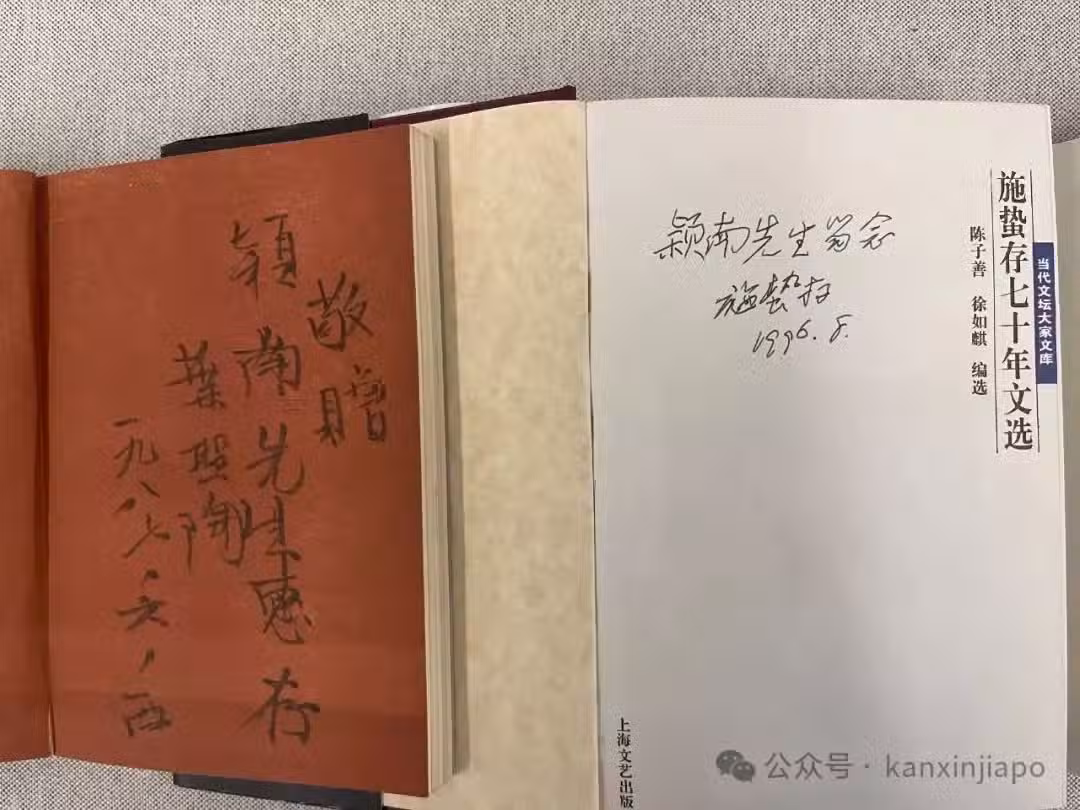 敬贈
穎南先生惠存
葉聖陶
一九八七、六、
颖南先生留念
施蛰存
1996.8.
当代文坛大家文库
施蛰存七十年文选
陈子善 徐如麒 编选
上海文艺出版
公众号 · kanxinjiapo